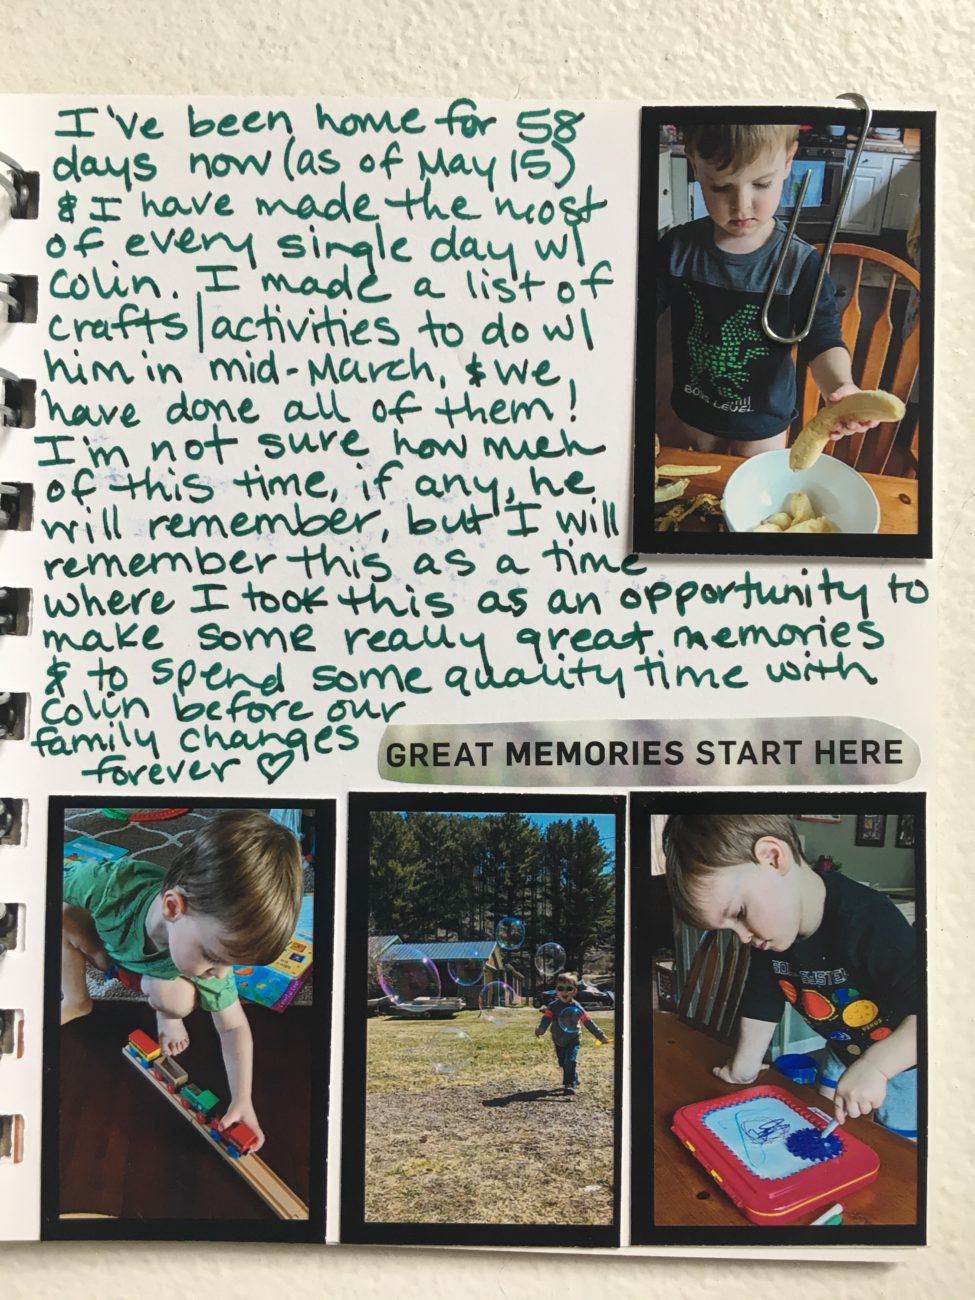 I've been home for 58
days now (as of May 15)
& I have made the most
of every single day w/
Colin. I made a list of
crafts/activities to do w/
him in mid-March, & we
have done all of them!
I'm not sure how much
of this time, if any, he
will remember, but I will
remember this as a time
where I took this as an opportunity to
make some really great memories
& to spend some quality time with
Colin before our
family changes
forever ♡
GREAT MEMORIES START HERE
LEVEL